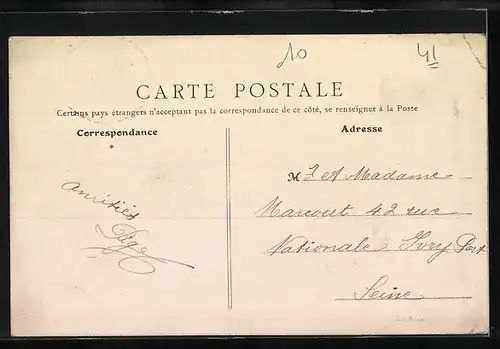 10
41
CARTE POSTALE
Certains pays étrangers n'acceptant pas la correspondance de ce côté, se renseigner à la Poste
Correspondance
Adresse
Amitiés
Mr et Madame
Marcout 42 rue
Nationale Ivry Port
Seine